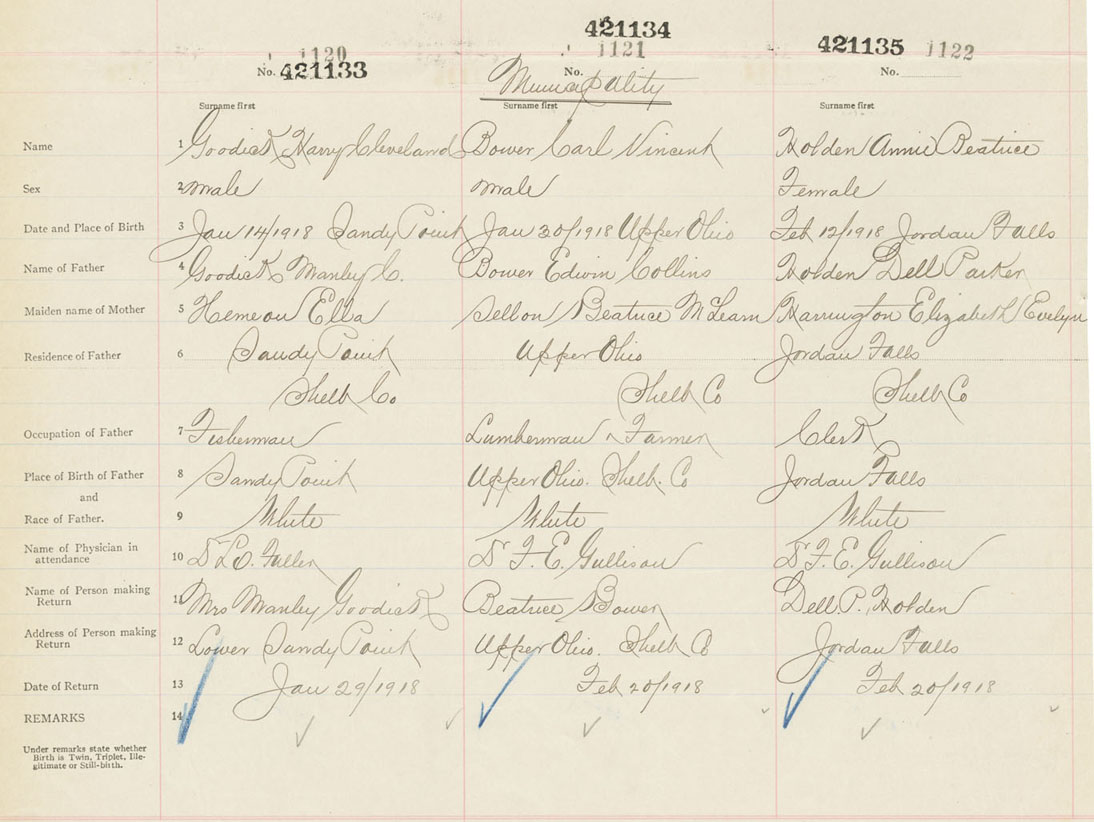 421134
1120 1121 421135 1122
No. 421133 No. No.
Municipality
Surname first Surname first Surname first
Name 1 Goodick Harry Cleveland Bower Carl Vincent Holden Annie Beatrice
Sex 2 male male Female
Date and Place of Birth 3 Jan 14/1918 Sandy Point Jan 30/1918 Upper Ohio Feb 12/1918 Jordan Falls
Name of Father 4 Goodick Manley C. Bower Edwin Collins Holden Dell Parker
Maiden name of Mother 5 Hemeon Ella Sellon Beatrice McLearn Harrington Elizabeth Evelyn
Residence of Father 6 Sandy Point Upper Ohio Jordan Falls
Shelb Co Shelb Co Shelb Co
Occupation of Father 7 Fisherman Lumberman Farmer Clerk
Place of Birth of Father 8 Sandy Point Upper Ohio. Shelb. Co Jordan Falls
and
Race of Father. 9 White White White
Name of Physician in
attendance 10 Dr L.O. Fuller Dr F. E. Gullison Dr F. E. Gullison
Name of Person making
Return 11 Mrs Manley Goodick Beatrice Bower Dell P. Holden
Address of Person making
Return 12 Lower Sandy Point Upper Ohio. Shelb Co Jordan Falls
Date of Return 13 Jan 29/1918 Feb 20/1918 Feb 20/1918
REMARKS 14
Under remarks state whether
Birth is Twin, Triplet, Ille-
gitimate or Still-birth.